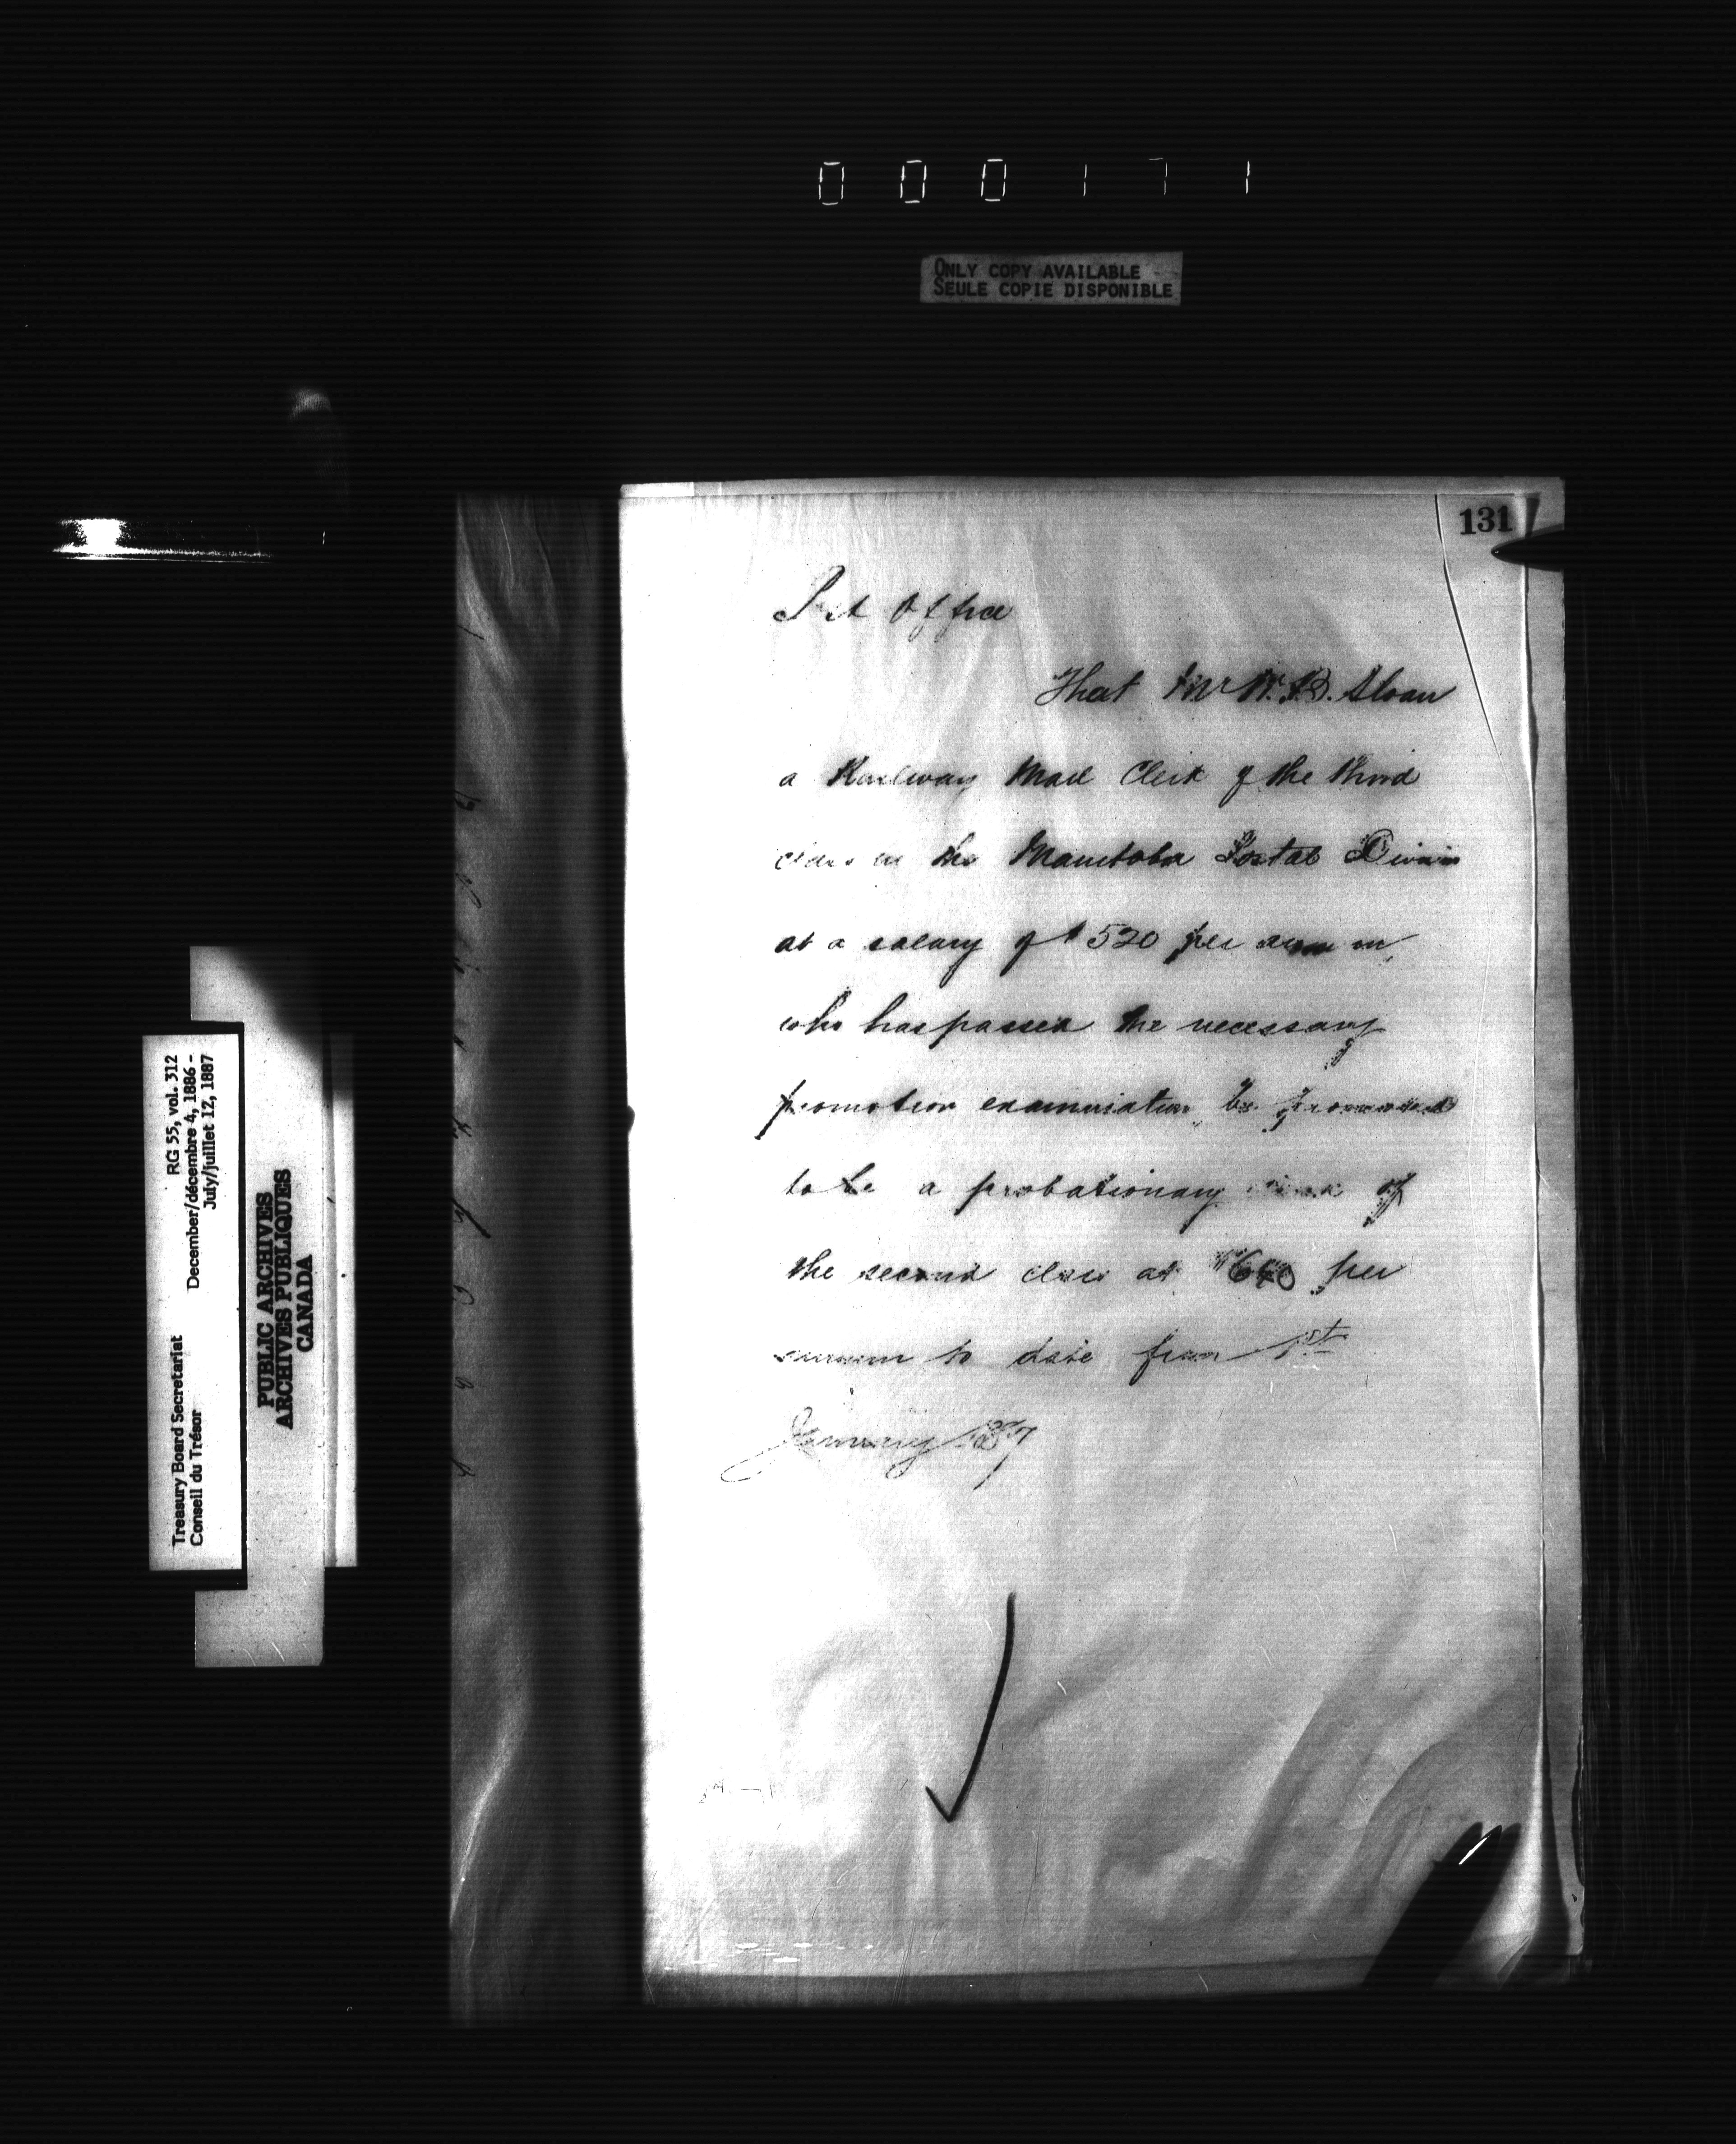 000171
ONLY COPY AVAILABLE
SEULE COPIE DISPONIBLE
131
Post Office
That Mr W. B. Sloan
a Railway Mail Clerk of the third
class in the Manitoba Postal Division
at a salary of $520 per annum
who has passed the necessary
promotion examination, be promoted
to be a probationary clerk of
the second class at $640 per
annum to date from 1st
January 1887
Treasury Board Secretariat
Conseil du Trésor
RG 55, vol. 312
December/décembre 4, 1886 -
July/juillet 12, 1887
PUBLIC ARCHIVES
ARCHIVES PUBLIQUES
CANADA